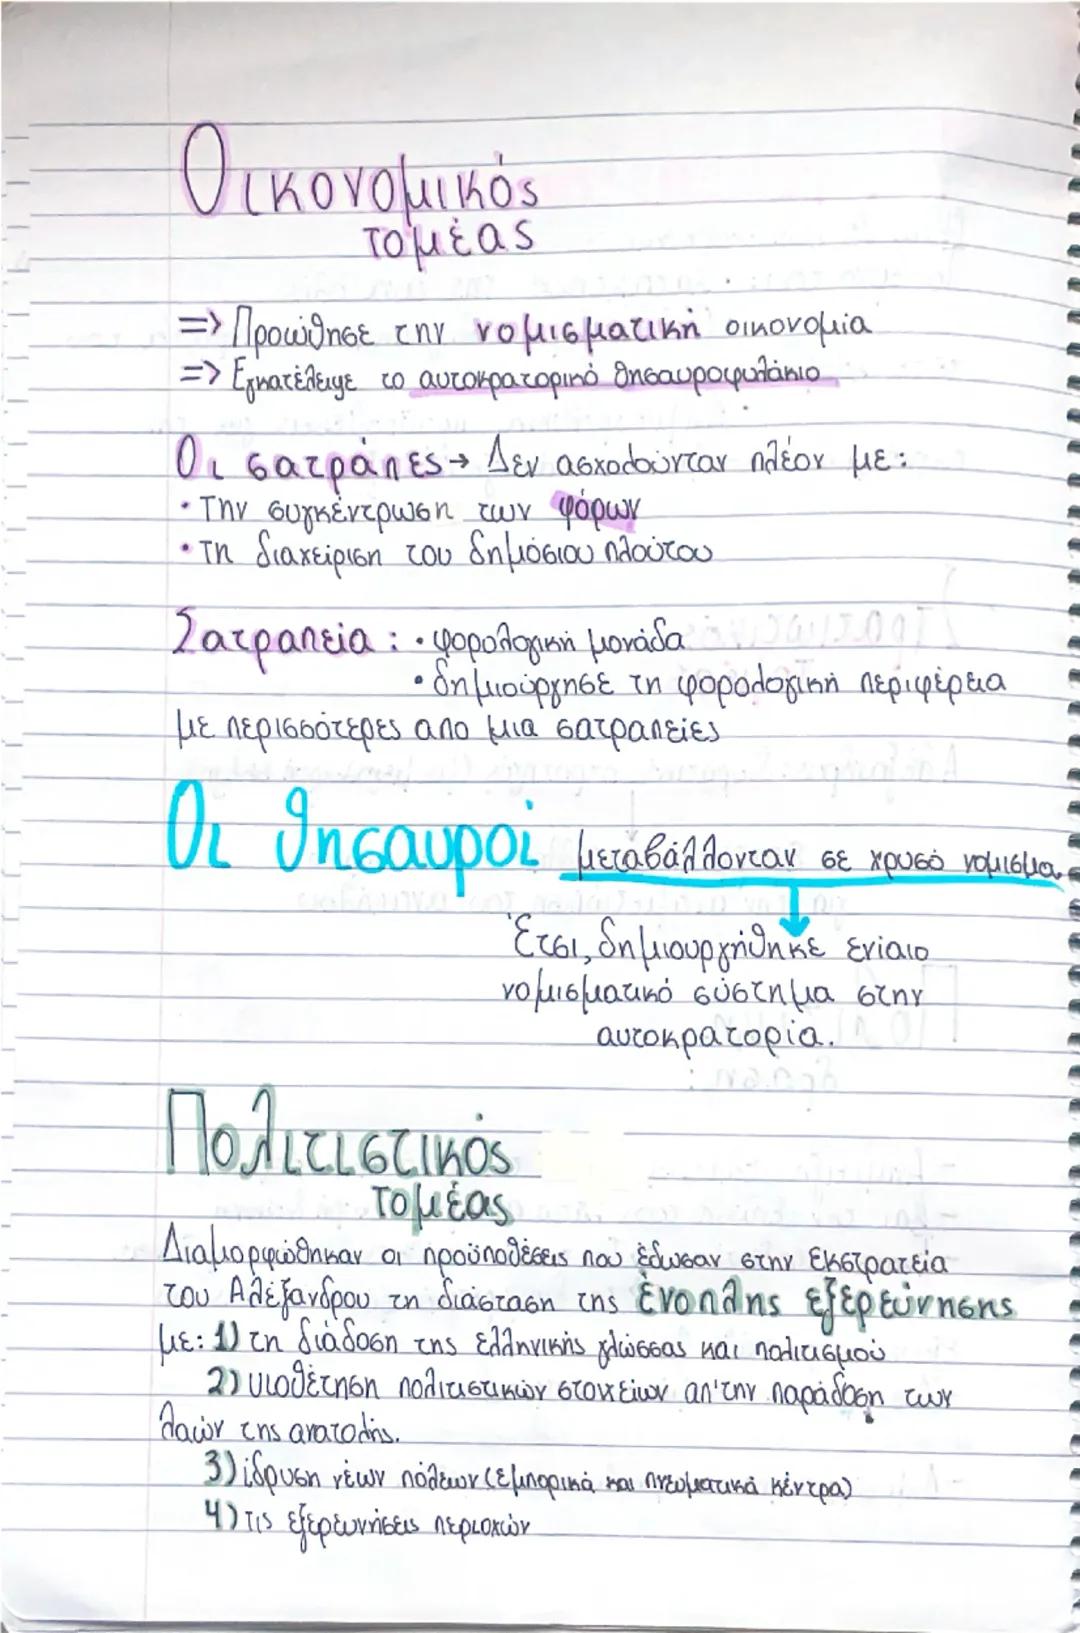 Οικονομικός
τομέας
=> Προώθησε την νομισματική οικονομία
=> Εγκατέλειψε το αυτοκρατορικό θησαυροφυλάκιο
Οι σατράπες → Δεν ασχολούνταν πλέον με:
• Την συγκέντρωση των φόρων
• Τη διαχείριση του δημόσιου πλούτου
Σατραπεία : • φορολογική μονάδα
• δημιούργησε τη φορολογική περιφέρεια
με περισσότερες απο μια σατραπείες
Οι θησαυροί μεταβάλλονταν σε χρυσό νόμισμα
Έτσι, δημιουργήθηκε ενιαίο
νομισματικό σύστημα στην
αυτοκρατορία.
Πολιτιστικός
τομέας
Διαμορφώθηκαν οι προϋποθέσεις που έδωσαν στην εκστρατεία
του Αλέξανδρου τη διάσταση της ένοπλης εξερεύνησης
με: 1) τη διάδοση της ελληνικής γλώσσας και πολιτισμού
2) υιοθέτηση πολιτιστικών στοιχείων απ'την παράδοση των
λαών της ανατολής.
3) ίδρυση νέων πόλεων (εμπορικά και πνευματικά κέντρα)
4) τις εξερευνήσεις περιοχών